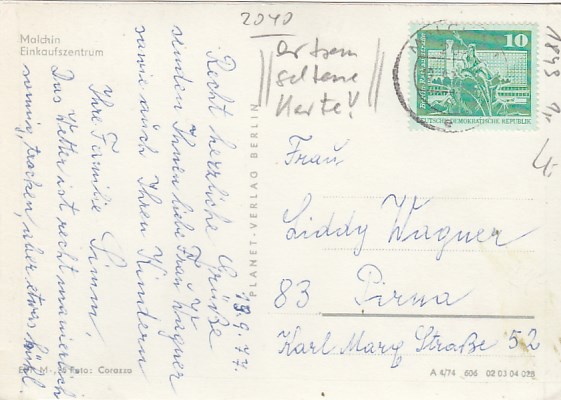 Malchin
Einkaufszentrum
2040
seltene
Karte!
10
DEUTSCHE DEMOKRATISCHE REPUBLIK
1843
4,-
19.9.77.
Recht herzliche Grüße
senden Ihnen liebe Frau Wagner
sowie auch Ihren Kindern
Ihre Familie Simm.
Das Wetter ist recht manierlich
sonnig, trocken, aber etwas kühl.
PLANET-VERLAG BERLIN
Frau
Liddy Wagner
83 Pirna
Karl Marx Straße 52
Foto: Corazza
A 4/74 606 02 03 04 028